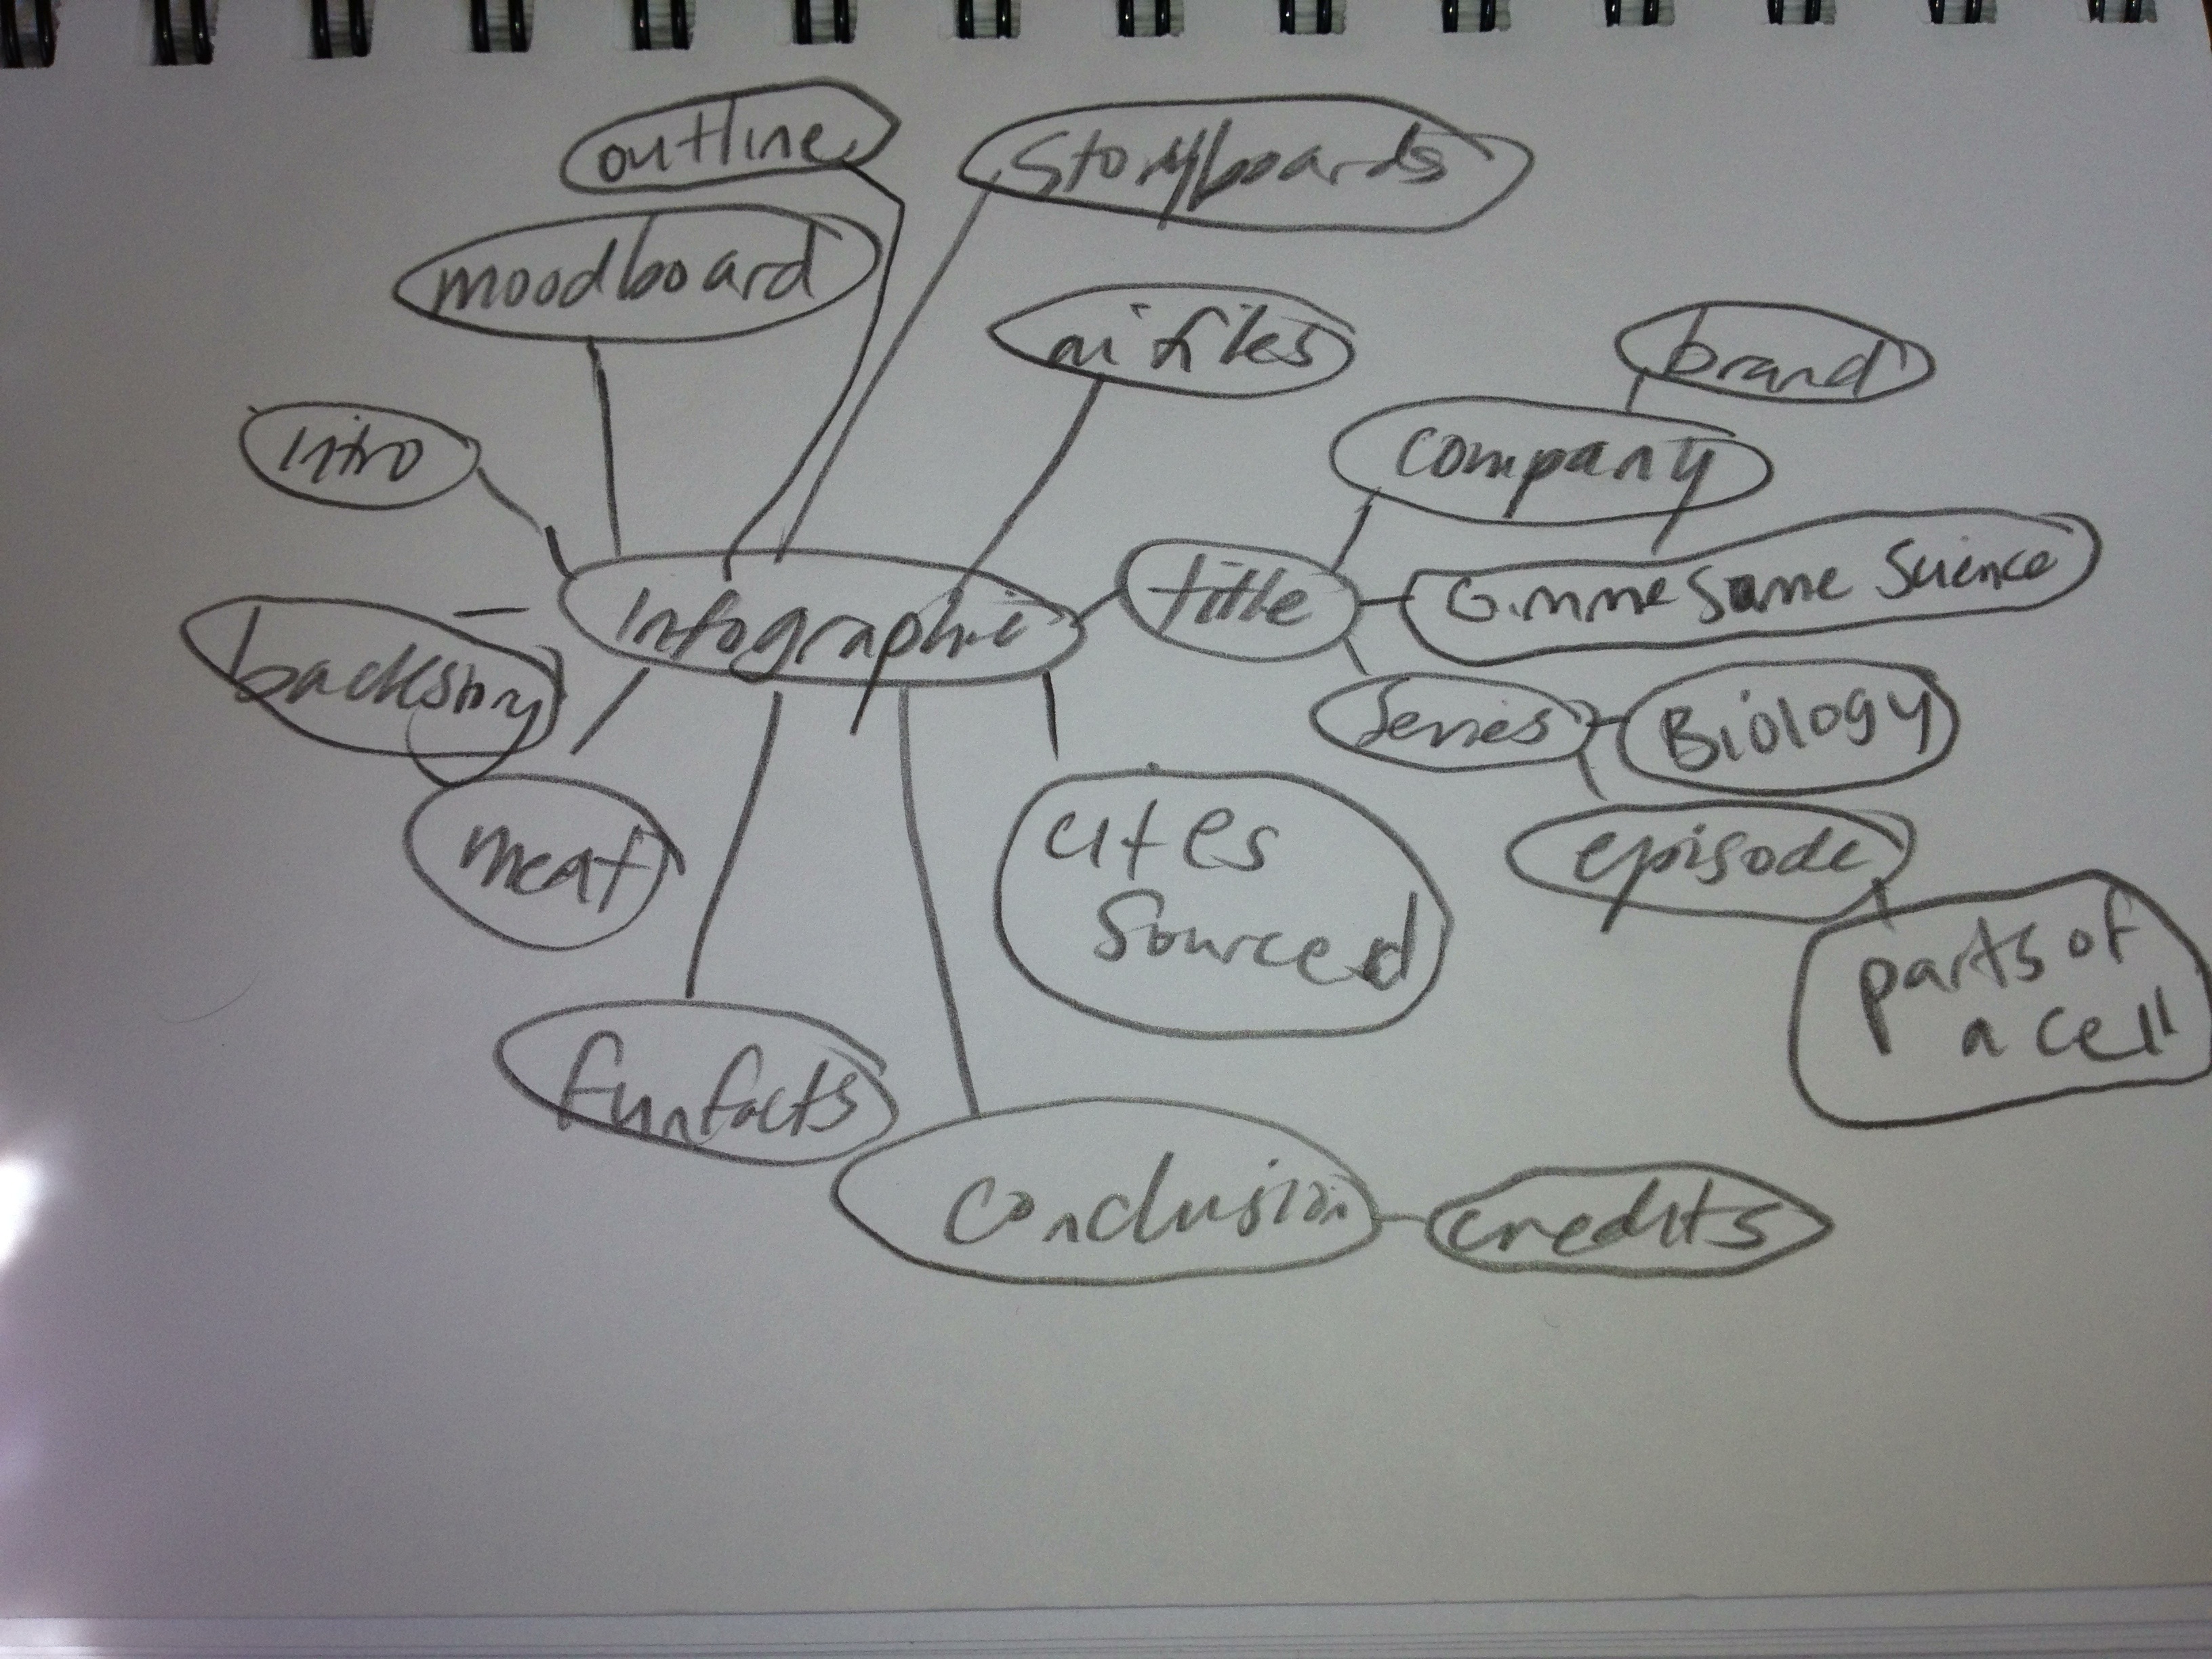 outline
Storyboards
moodboard
ai files
brand
Intro
company
Infographic
title
Gimme Some Science
backstory
Series
Biology
meat
cites
Sourced
episode
parts of
a cell
fun facts
Conclusion
credits